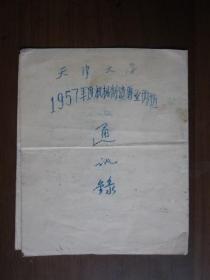 天津大学
1957年度机械制造专业
通
讯
录